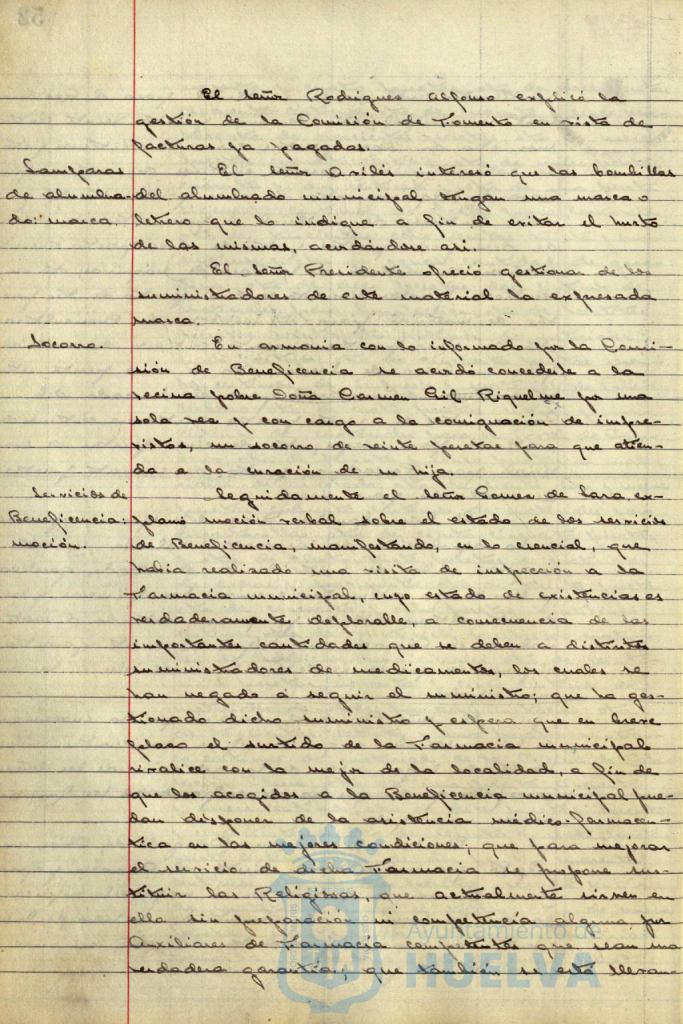 El Señor Rodriguez Alfonso explicó la
gestión de la Comisión de Fomento en vista de
facturas ya pagadas.
Lamparas
de alumbra-
do: marca.
El Señor Avilés interesó que las bombillas
del alumbrado municipal tengan una marca o
letrero que lo indique a fin de evitar el hurto
de las mismas, acordándose asi.
El Señor Presidente ofreció gestionar de los
suministradores de este material la expresada
marca.
Socorro.
En armonia con lo informado por la Comi-
sión de Beneficencia se acordó concederle a la
vecina pobre Doña Carmen Gil Riquelme por una
sola vez y con cargo a la consignación de impre-
vistos, un socorro de veinte pesetas para que atien-
da a la curación de su hija.
Servicios de
Beneficencia:
moción.
Seguidamente el Señor Gomez de Lara, ex-
planó moción verbal sobre el estado de los servicios
de Beneficencia, manifestando, en lo esencial, que
habia realizado una visita de inspección a la
Farmacia municipal, cuyo estado de existencias es
verdaderamente deplorable, a consecuencia de las
importantes cantidades que se deben a distintos
suministradores de medicamentos, los cuales se
han negado a seguir el suministro; que ha ges-
tionado dicho suministro y espera que en breve
plazo el surtido de la Farmacia municipal
rivalice con la mejor de la localidad, a fin de
que los acogidos a la Beneficencia municipal pue-
dan disponer de la asistencia médico-farmaceu-
tica en las mejores condiciones; que para mejorar
el servicio de dicha Farmacia se propone sus-
tituir las Religiosas, que actualmente sirven en
ella sin preparación ni competencia alguna por
Auxiliares de Farmacia competentes que sean una
verdadera garantía; que también se está llevan-
Ayuntamiento de
HUELVA